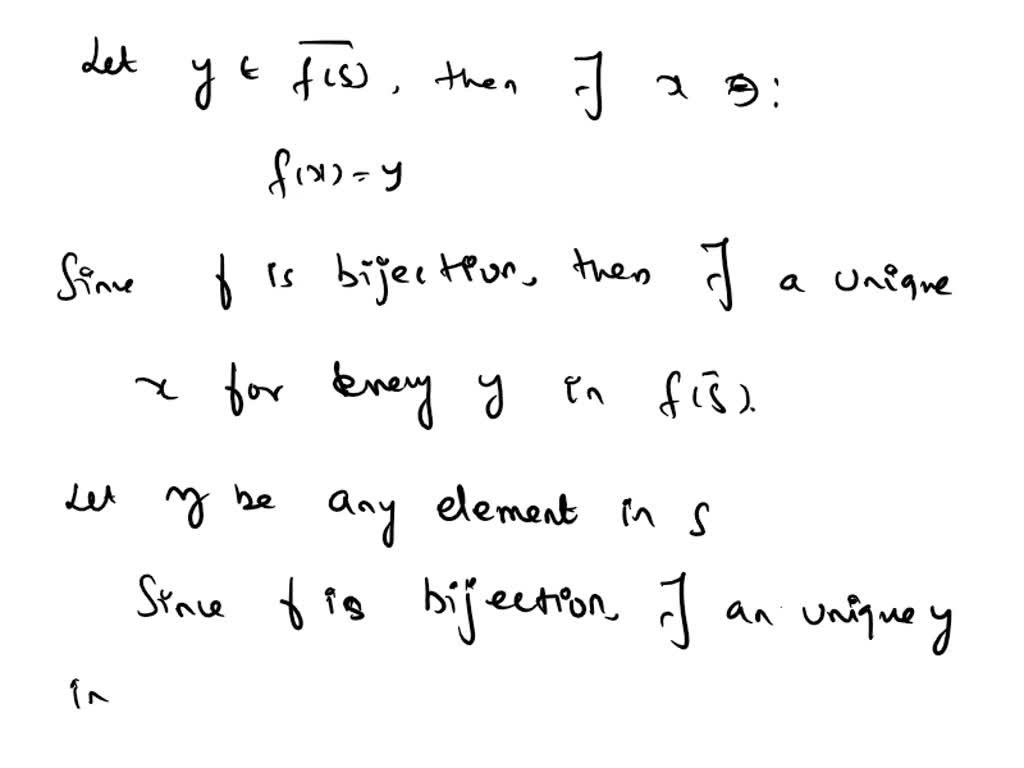 Let y ∈ \overline{f(S)}, then ∃ x ∋:
f(x) = y
Since f is bijection, then ∃ a unique
x for every y in f(\bar{S}).
Let y be any element in S
Since f is bijection, ∃ an unique y
in